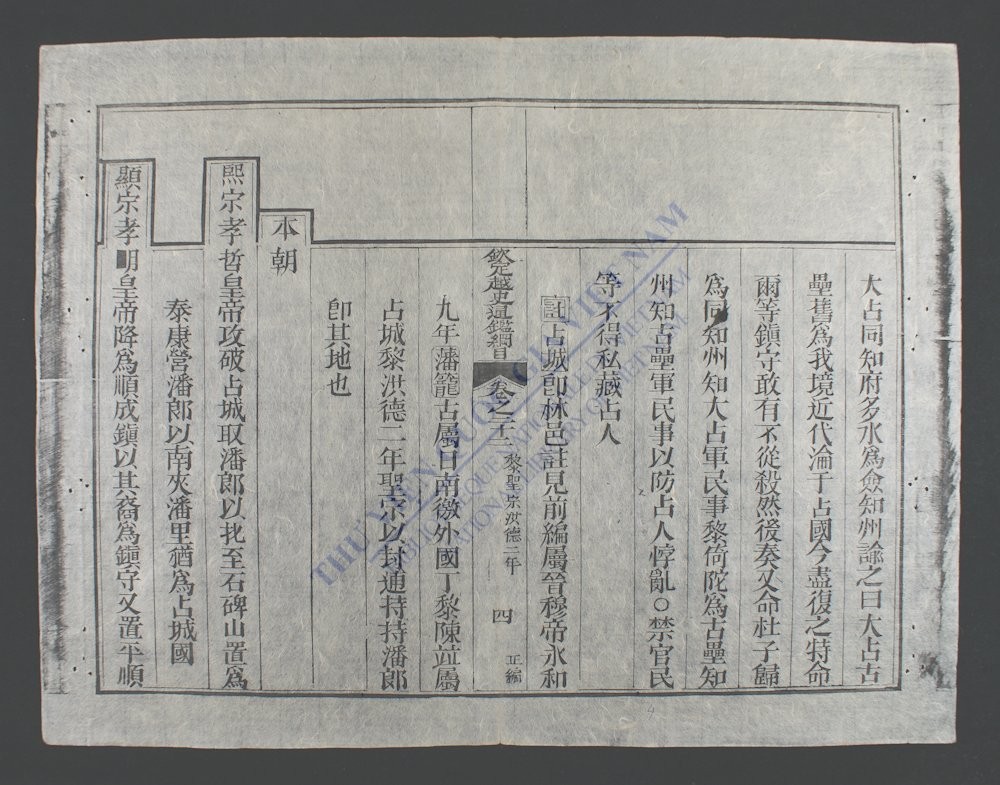 大占同知府多水爲僉知州諭之曰大占古
壘舊爲我境近代淪于占國今盡復之特命
爾等鎮守敢有不從殺然後奏又命杜子歸
爲同知州知大占軍民事黎倚陀爲古壘知
州知古壘軍民事以防占人悖亂○禁官民
等不得私藏占人
註占城卽林邑註見前編屬晉穆帝永和
欽定越史通鑑綱目 卷之二十二 黎聖宗洪德二年 四 正編
九年藩籠古屬日南徼外國丁黎陳竝屬
占城黎洪德二年聖宗以封逋持持潘郎
卽其地也
本朝
熙宗孝哲皇帝攻破占城取潘郎以北至石碑山置爲
泰康營潘郎以南夾潘里猶爲占城國
顯宗孝明皇帝降爲順成鎮以其裔爲鎮守又置平順
THƯ VIỆN QUỐC GIA VIỆT NAM
BIBLIOTHEQUE NATIONALE DU VIETNAM
NATIONAL LIBRARY OF VIETNAM